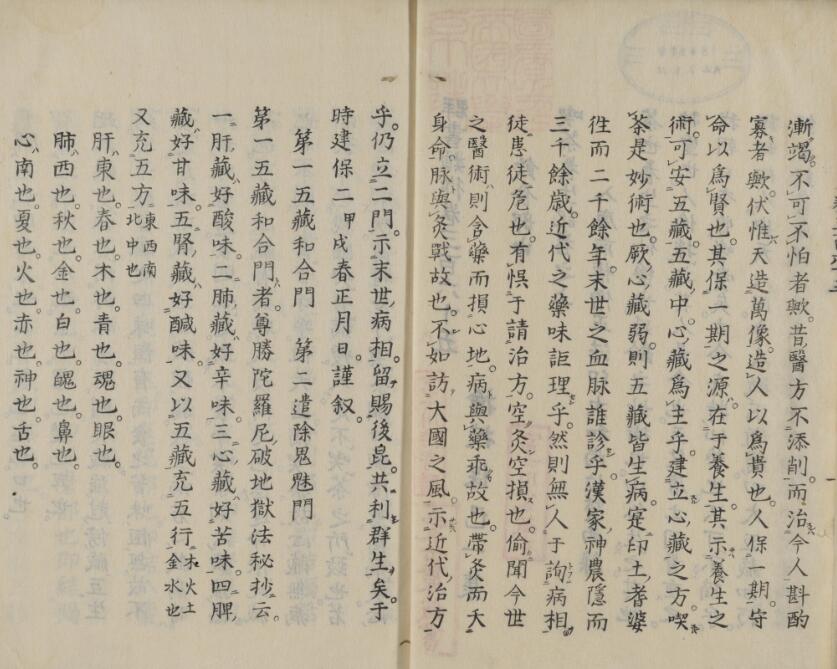 漸竭。不可不怕者歟。昔醫方不添削而治。今人斟酌
寡者歟。伏惟天造萬像。造人以爲貴也。人保一期。守
命以爲賢也。其保一期之源。在于養生。其示養生之
術。可安五藏。五藏中。心藏爲主乎。建立心藏之方。喫
茶是妙術也。厥心藏弱。則五藏皆生病。寔印土耆婆
徃而二千餘年。末世之血脉誰診乎。漢家神農隱而
三千餘歳。近代之藥味詎理乎。然則無人于詢病相。
徒患徒危也。有悞于請治方。空灸空損也。偷聞今世
之醫術。則含藥而損心地。病與藥乖故也。帶灸而夭
身命。脉與灸戰故也。不如訪大國之風。示近代治方
乎。仍立二門。示末世病相。留賜後昆。共利群生矣。于
時建保二甲戌春正月日謹叙。
第一五藏和合門　第二遣除鬼魅門
第一五藏和合門者。尊勝陀羅尼破地獄法秘抄云。
一肝藏好酸味。二肺藏好辛味。三心藏好苦味。四脾
藏好甘味。五腎藏好鹹味。又以五藏充五行木火土金水也
又充五方東西南北中也
肝。東也。春也。木也。青也。魂也。眼也。
肺。西也。秋也。金也。白也。魄也。鼻也。
心。南也。夏也。火也。赤也。神也。舌也。